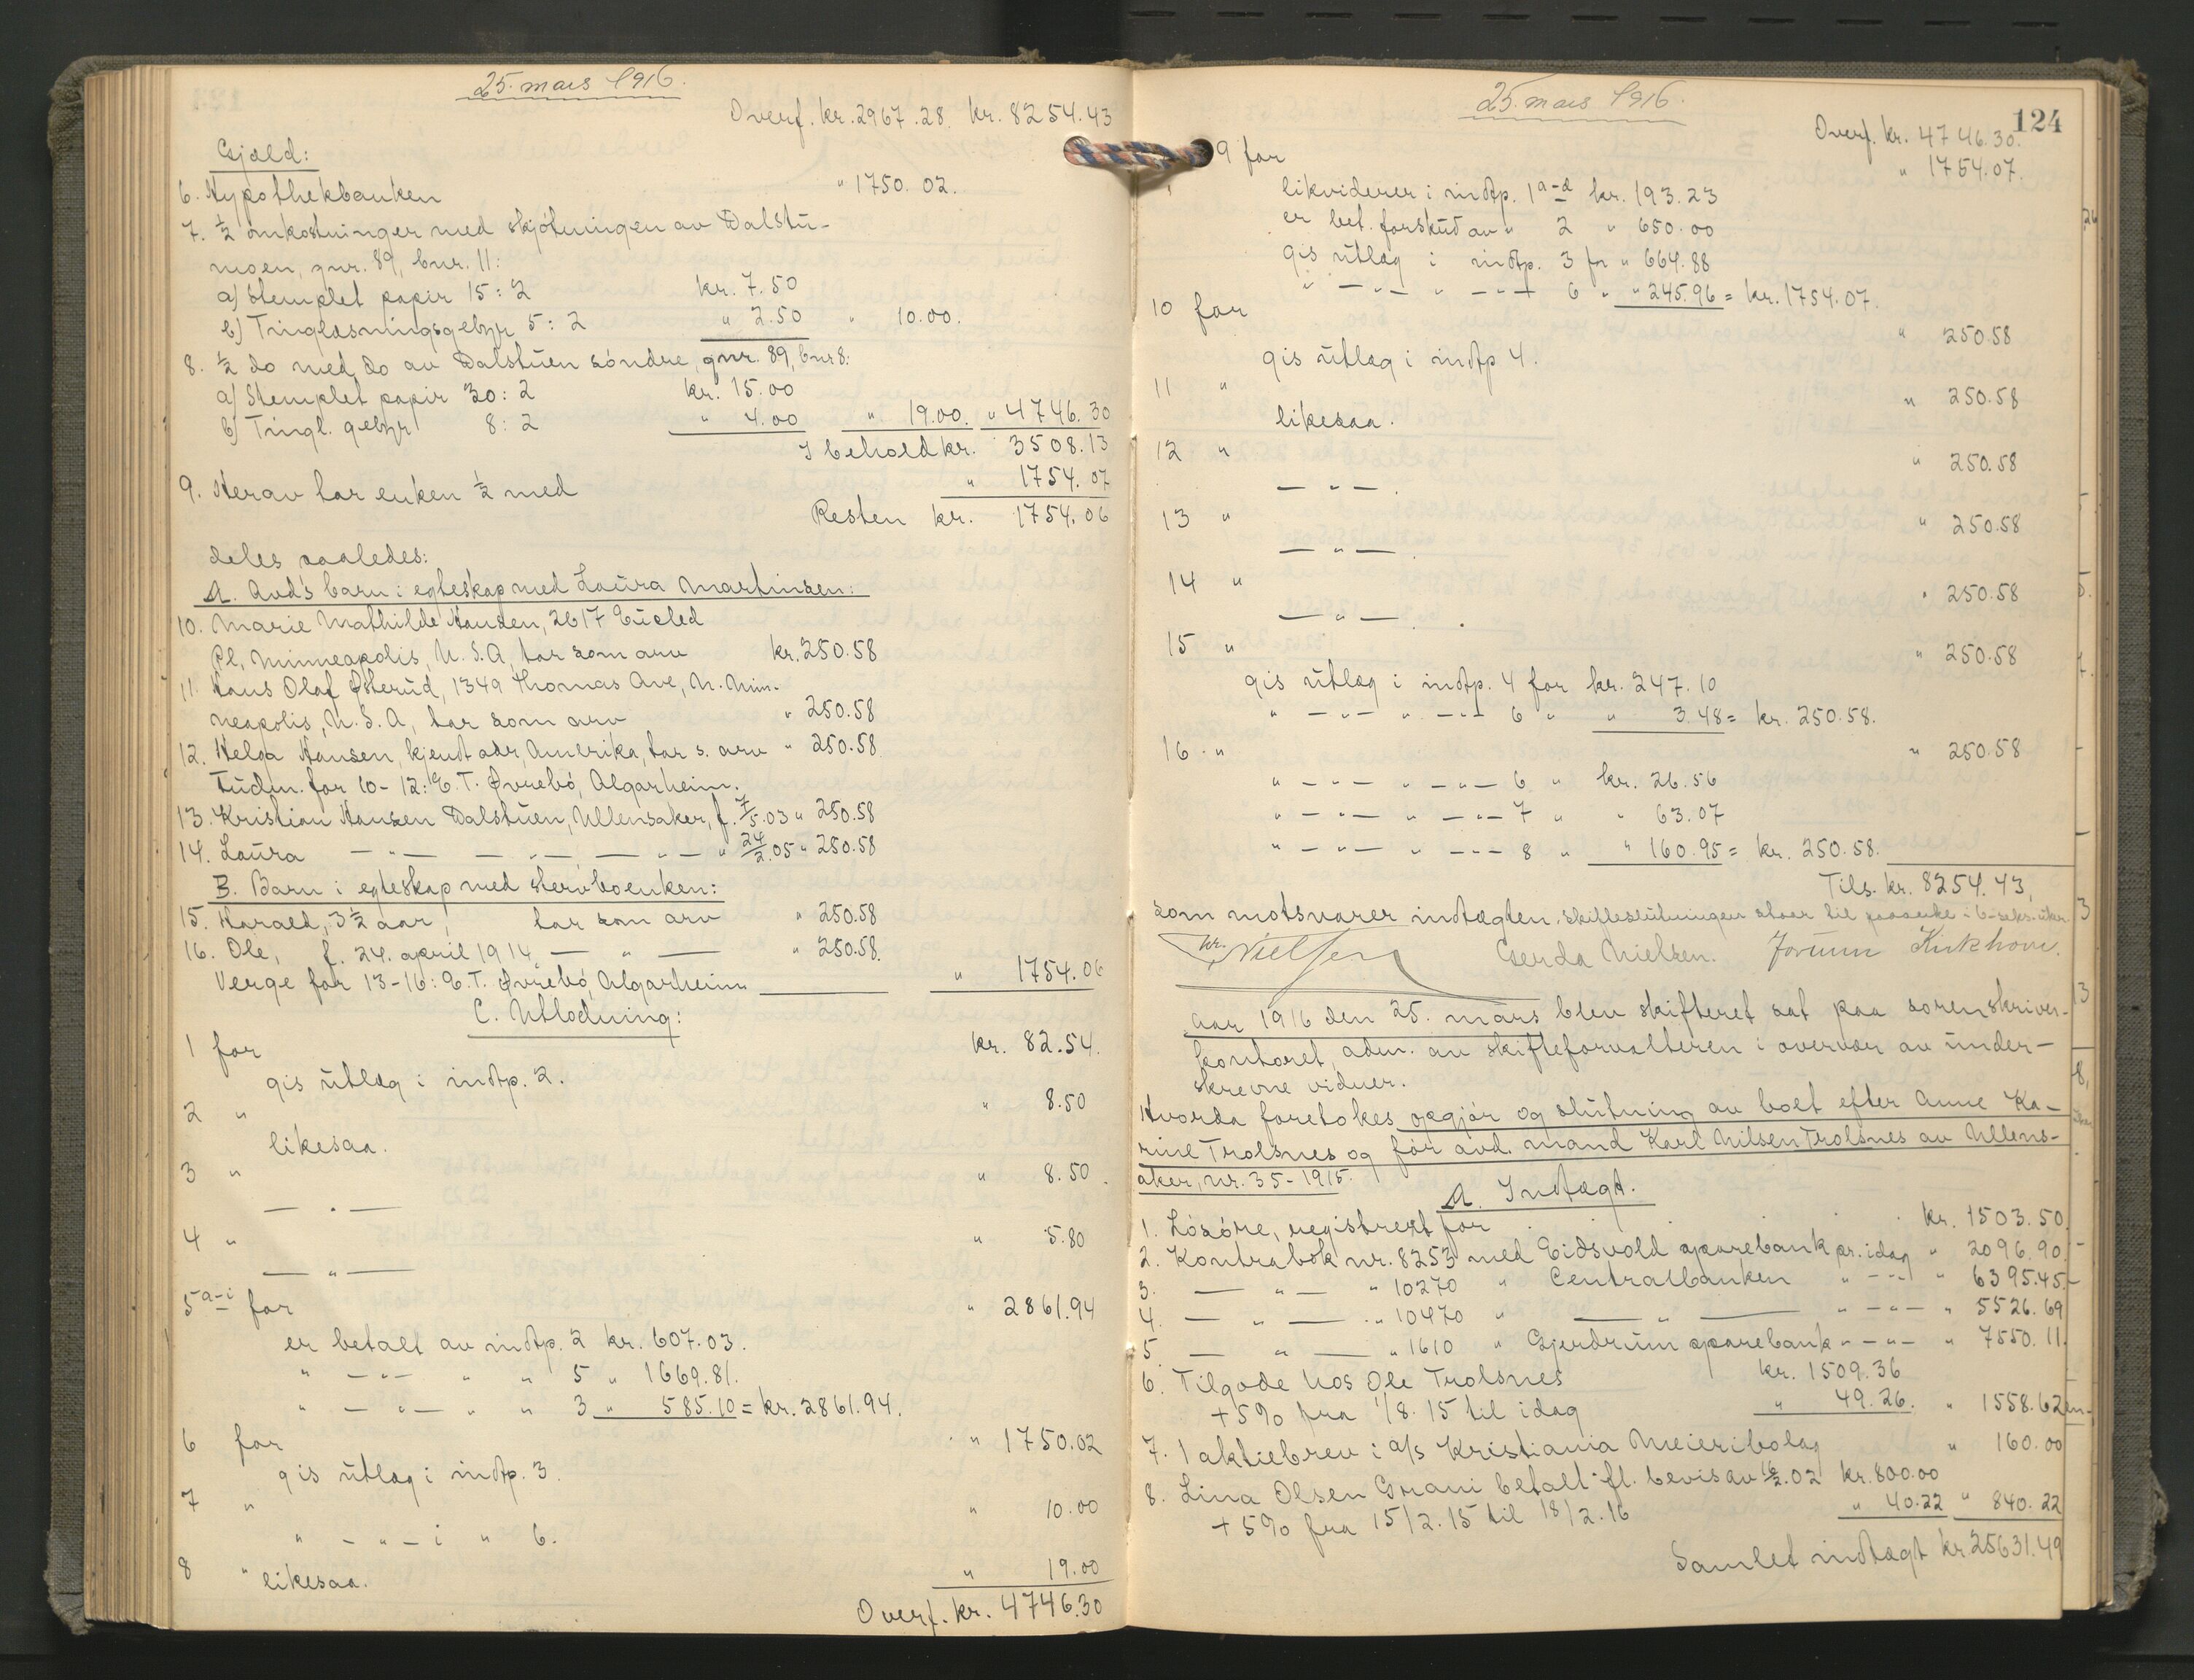 25. mars 1916.
Overf. kr. 2967.28. kr. 8254.43
Gjæld:
6. Hypothekbanken " 1750.02.
7. ½ omkostninger med skjøtningen av Dalstu-
moen, gnr. 89, bnr. 11:
a) Stemplet papir 15:2 kr. 7.50
b) Tinglæsningsgebyr 5:2 " 2.50 " 10.00.
8. ½ do med do av Dalstuen söndre, gnr. 89, bnr 8:
a) Stemplet papir 30:2 kr. 15.00
b) Tingl. gebyr 8:2 " 4.00 " 19.00. " 4746.30
I behold kr. 3508.13
9. Herav har enken ½ med " 1754.07
Resten kr. 1754.06
deles saaledes:
A. Avd's barn i egteskap med Laura Martinsen:
10. Marie Mathilde Hansen, 2617 Euclid
Pl, Minneapolis, U.S.A, har som arv kr. 250.58
11. Hans Olaf Østerud, 1349 Thomas Ave, N. Min-
neapolis, U.S.A, har som arv " 250.58
12. Helga Hansen, kjendt adr, Amerika, har s. arv " 250.58
Fuldm. for 10-12: E. T. Øvrebö, Algarheim.
13. Kristian Hansen Dalstuen, Ullensaker, f. 7/5.03 " 250.58
14. Laura — " — — " — — " — " 24/2.05 " 250.58
B. Barn i egteskap med stervboenken:
15. Harald, 3½ aar, har som arv " 250.58
16. Ole, f. 24. april 1914, — " — " 250.58.
Verge for 13-16: E. T. Øvrebö, Algarheim " 1754.06
C. Utlodning:
1 for kr. 82.54.
gis utlæg i indtp. 2.
2 " " 8.50
likesaa.
3 " " 8.50.
— " —
4 " " 5.80
— " —
5 a-i for " 2861.94
er betalt av indtp. 2 kr. 607.03.
" — " — " " 5 " 1669.81.
" — " — " " 3 " 585.10 = kr. 2861.94.
6 for " 1750.02
gis utlæg i indtp. 3.
7 " " 10.00
" — " — i " 6.
8 " " 19.00
likesaa.
Overf. kr. 4746.30
25. mars 1916.
124
Overf. kr. 4746.30.
9 for " 1754.07.
likviderer i indtp. 1 a-d kr. 193.23
er bet. forskud av " 2 " 650.00
gis utlæg i indtp. 3 for " 664.88
" — " — " — " — 6 " " 245.96 = kr. 1754.07.
10 for " 250.58
gis utlæg i indtp 4.
11 " " 250.58
likesaa.
12 " " 250.58
— " —.
13 " " 250.58
— " —.
14 " " 250.58
— " —.
15 " " 250.58
gis utlæg i indtp. 4 for kr. 247.10
" — " — " — " — 6 " " 3.48 = kr. 250.58.
16 " " 250.58
" — " — " — " — 6 " kr. 26.56
" — " — " — " — 7 " " 63.07
" — " — " — " — 8 " " 160.95 = kr. 250.58.
Tils. kr. 8254.43,
som motsvarer indtægten. Skifteslutningen staar til paaanke i 6-seks-uker.
Nielsen Gerda Nielsen.
Aar 1916 den 25. mars blev skifteret sat paa sorenskriver-
kontoret, adm. av skifteforvalteren i overvær av under-
skrevne vidner.
Hvorda foretokes opgjör og slutning av boet efter Anne Ka-
rine Trolsnes og för avd. mand Karl Nilsen Trolsnes av Ullens-
aker, nr. 35-1915.
A. Indtægt.
1. Lösöre, registrert for kr. 1503.50
2. Kontrabok nr. 8253 med Eidsvold sparebank pr. idag " 2096.90
3. — " — " 10270 " Centralbanken " — " — " 6395.45
4. — " — " 10470 " — " — " — " — " 5526.69
5. — " — " 1610 " Gjerdrum sparebank " — " — " 7550.11
6. Tilgode hos Ole Trolsnes kr. 1509.36
+ 5% fra 1/8.15 til idag " 49.26. " 1558.62
7. 1 aktiebrev i a/s Kristiania Meieribolag " 160.00
8. Lina Olsen Grani betalt fl. bevis av 18/2.02 kr. 800.00
+ 5% fra 15/2.15 til 18/2.16 " 40.22 " 840.22
Samlet indtægt kr. 25631.49